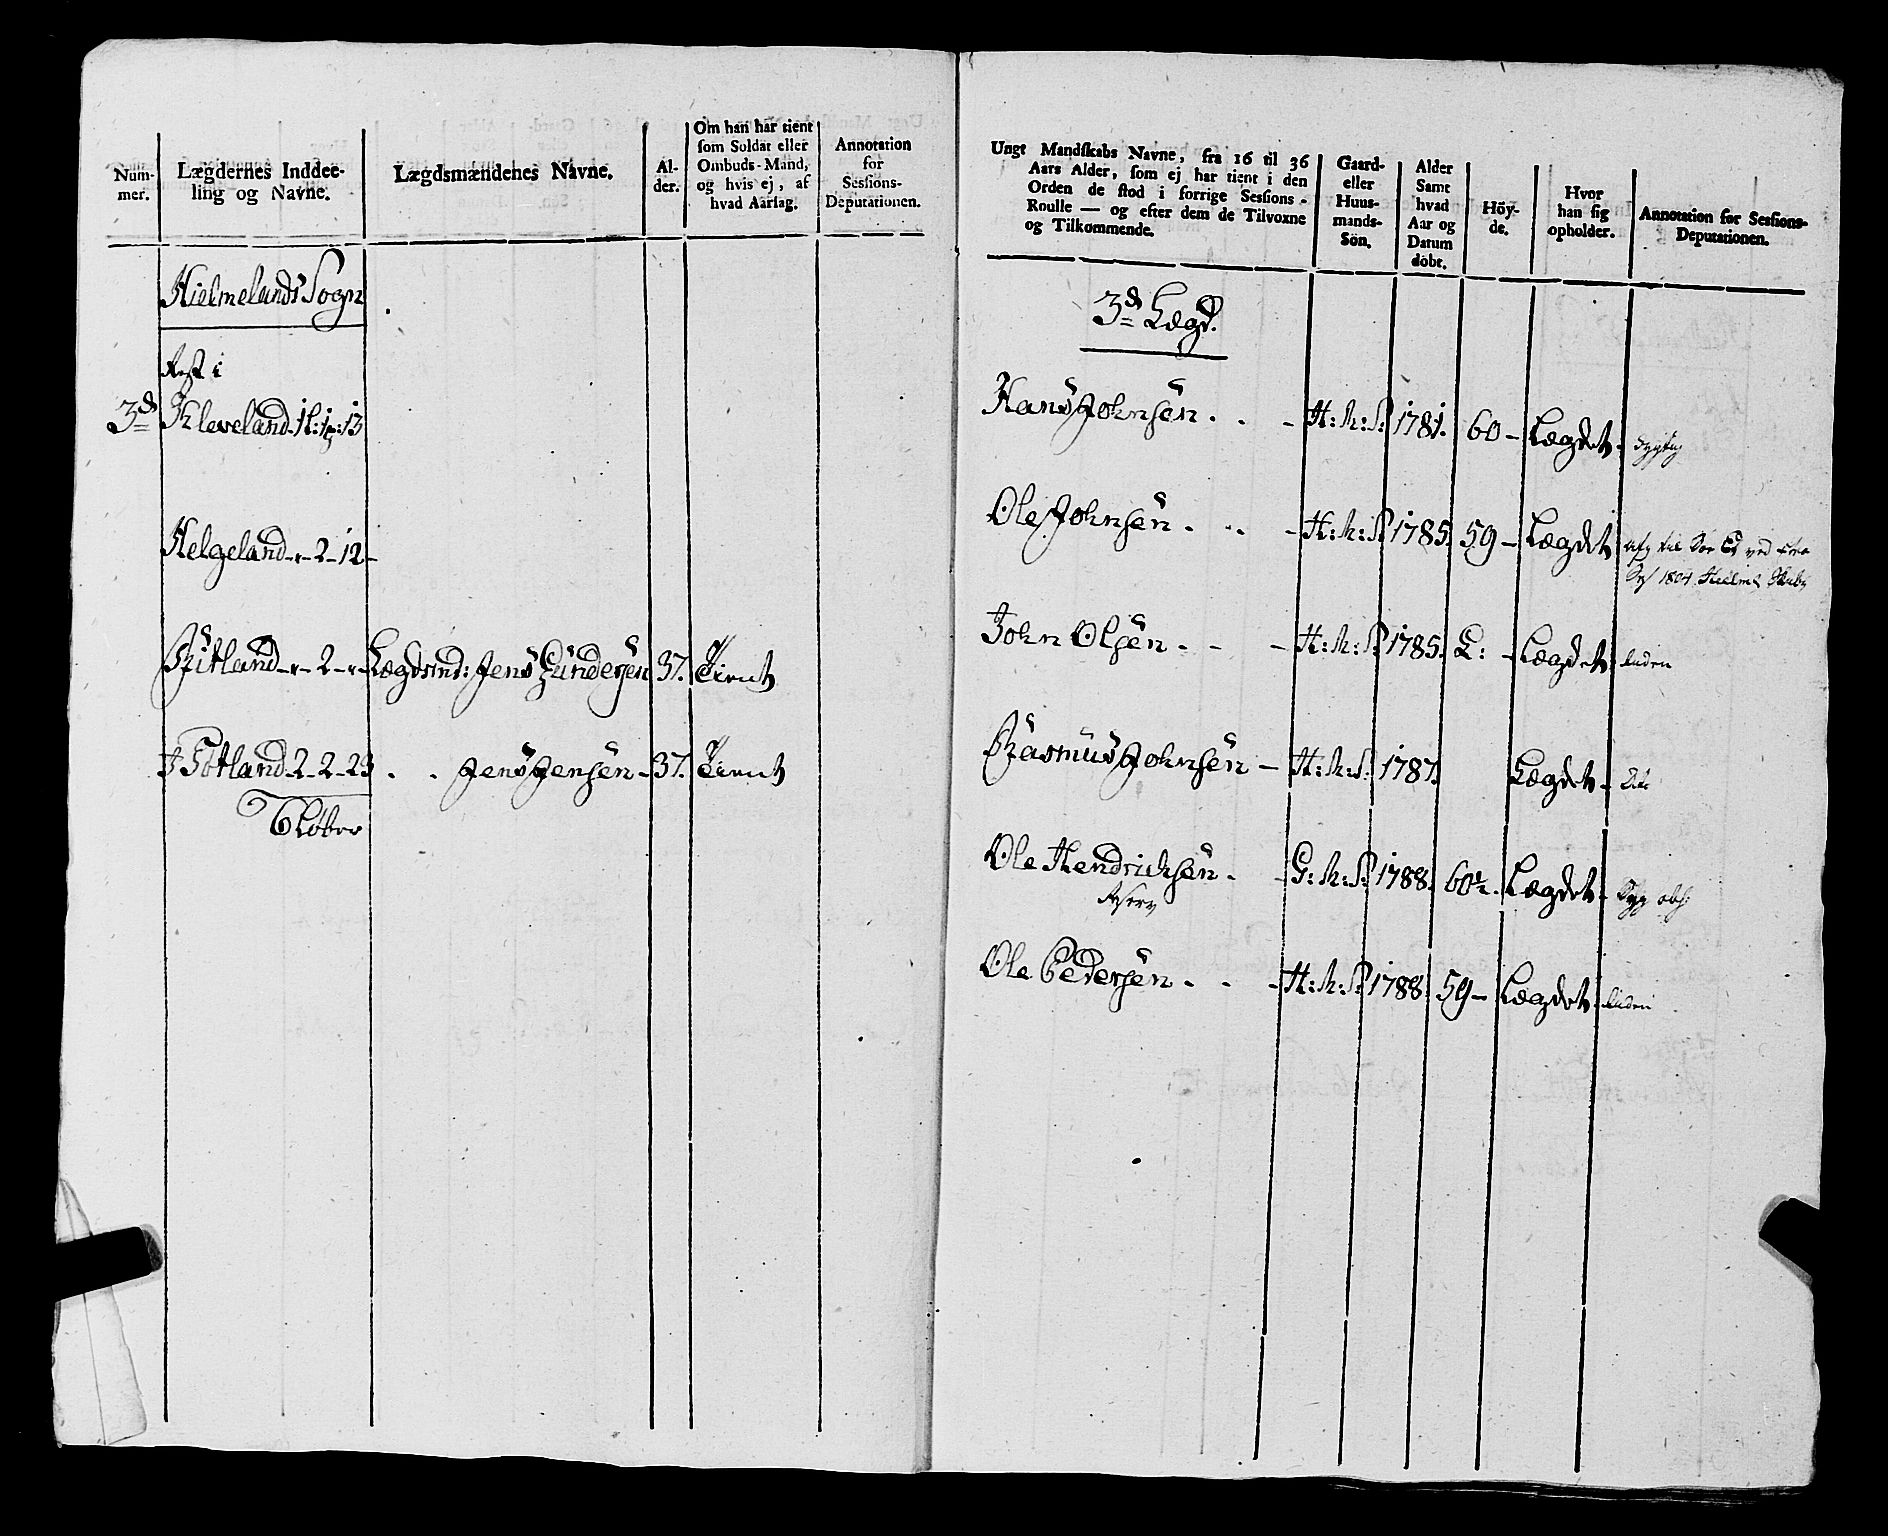 Num-
mer.
Lægdernes Inddee-
ling og Navne.
Lægdsmændenes Navne.
Al-
der.
Om han har tient
som Soldat eller
Ombuds-Mand,
og hvis ej, af
hvad Aarsag.
Annotation
for
Sessions-
Deputationen.
Hielmelands Sogn
Rest i
3d Kleveland
Helgeland - " - 2 - 12 -
Ritland - " - 2 - " - Lægdsmd: Jens Gundersen 37. Tient
Totland 2 - 2 - 23 . . Jens Jensen - 37. Tient
Løber
Ungt Mandskabs Navne, fra 16 til 36
Aars Alder, som ej har tient i den
Orden de stod i forrige Sessions-
Roulle — og efter dem de Tilvoxne
og Tilkommende.
Gaard-
eller
Huus-
mands-
Sön.
Alder
Samt
hvad
Aar og
Datum
döbt.
Höy-
de.
Hvor
han sig
opholder.
Annotation for Sessions-
Deputationen.
3d Lægd.
Hans Johnsen . . - H: M: S: 1781. 60 - Lægdet -
Ole Johnsen . . - H: M: S: 1785. 59 - Lægdet Afg til Søe Ed ved
1804 Hielm
John Olsen . - - H: M: S: 1785. L: - Lægdet liden
Rasmus Johnsen - H: M: S: 1787. Lægdet -
Ole Hendrichsen - - G: M: S: 1788. 60½ - Lægdet - Syg obs:
Reserv
Ole Pedersen . . - H: M: S: 1788 59 - Lægdet - liden